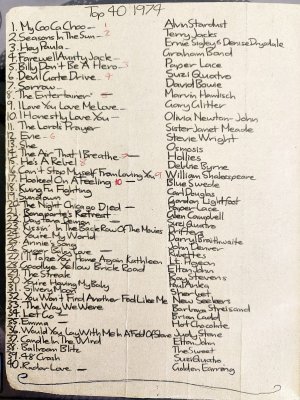 Top 40 1974
1. My Coo Ca Choo - 1 Alvin Stardust
2. Seasons In The Sun - 2 Terry Jacks
3. Hey Paula - Ernie Sigley & Denise Drysdale
4. Farewell Aunty Jack - Grahame Bond
5. Billy Don't Be A Hero - Paper Lace
6. Devil Gate Drive - Suzi Quatro
7. Sorrow - David Bowie
8. The Entertainer Marvin Hamlisch
9. I Love You Love Me Love Gary Glitter
10. I Honestly Love You - Olivia Newton-John
11. The Lords Prayer Sister Janet Meade
12. Evie - 6 Stevie Wright
13. She Osmosis
14. The Air That I Breathe Hollies
15. He's A Rebel Debbie Byrne
16. Can't Stop Myself From Loving You William Shakespeare
17. Hooked On A Feeling 10 - Blue Swede
18. Kung Fu Fighting Carl Douglas
19. Sundown Gordon Lightfoot
20. The Night Chicago Died - Paper Lace
21. Bonaparte's Retreat Glen Campbell
Suzi Quatro
23. Kissin' In The Back Row Of The Movies Drifters
24. You're My World Daryl Braithwaite
25. Annie's Song John Denver
Rubettes
27. I'll Take You Home Again Kathleen
28. Goodbye Yellow Brick Road Elton John
29. The Streak Ray Stevens
30. You're Having My Baby Paul Anka
31. Silvery Moon Sherbet
32. You Won't Find Another Fool Like Me New Seekers
33. The Way We Were Barbara Streisand
34. Let Go - Brian Cadd
35. Emma Hot Chocolate
36. Would You Lay With Me In A Field Of Stone Judy Stone
37. Candle In The Wind Elton John
38. Ballroom Blitz The Sweet
39. 48 Crash Suzi Quatro
40. Radar Love - Golden Earring